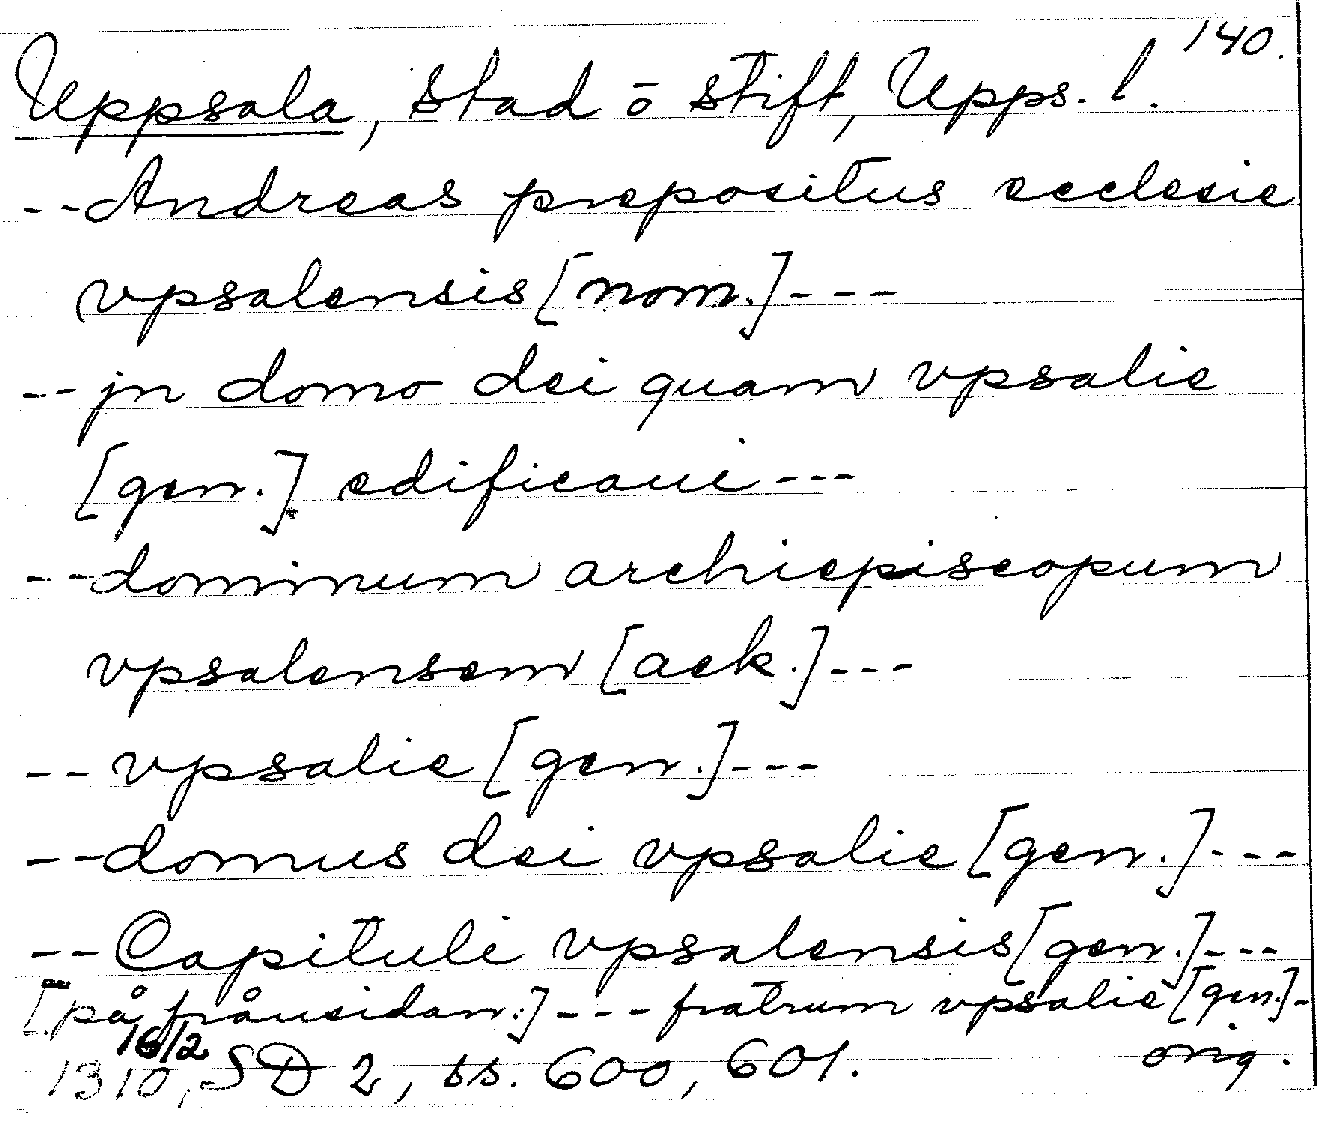 140.
Uppsala, stad o stift, Upps. l.
-- Andreas prepositus ecclesie
vpsalensis [nom.] ---
-- jn domo dei quam vpsalie
[gen.] edificaui ---
-- dominum archiepiscopum
vpsalensem [ack.] ---
-- vpsalie [gen.] ---
-- domus dei vpsalie [gen.] ---
-- Capituli vpsalensis [gen.] ---
[på frånsidan:] --- fratrum vpsalie [gen.] -
16/2 orig.
1310, SD 2, ss. 600, 601.